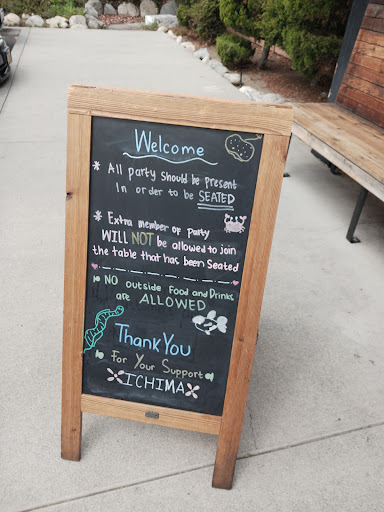 Welcome
* All party should be present
In order to be SEATED
* Extra member of party
WILL NOT be allowed to join
the table that has been Seated
NO outside Food and Drinks
are ALLOWED
Thank You
For Your Support
ICHIMA